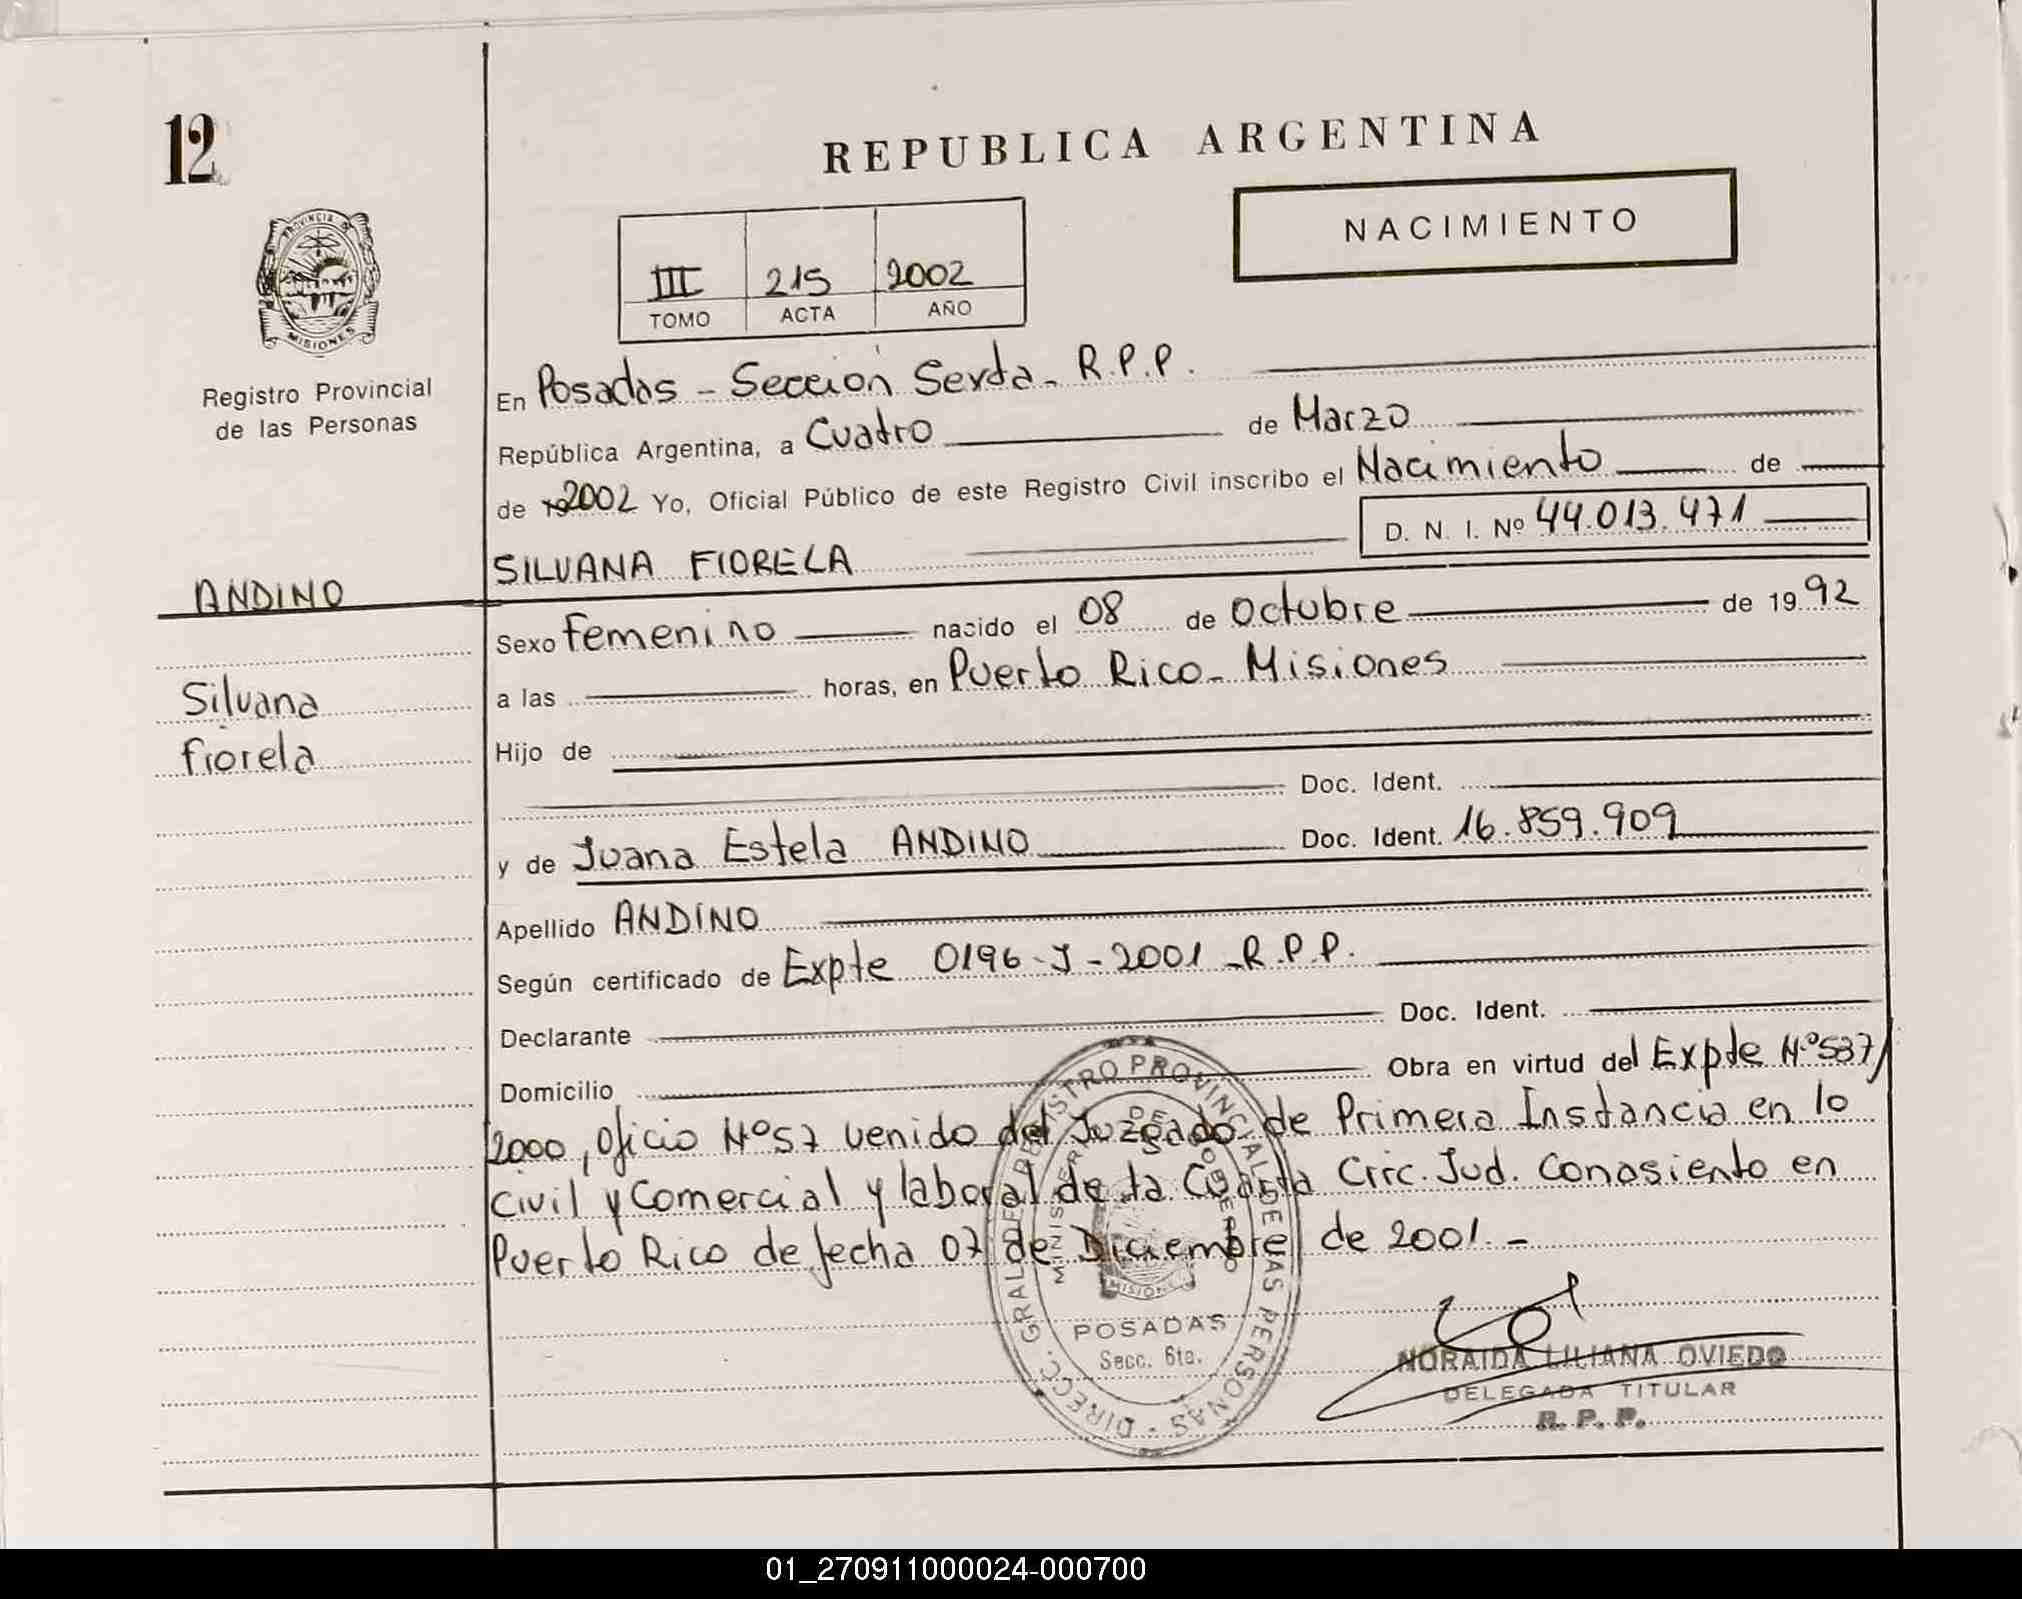 12
REPUBLICA ARGENTINA
NACIMIENTO
III 215 2002
TOMO ACTA AÑO
PROVINCIA DE
MISIONES
Registro Provincial
de las Personas
En Posadas - Sección Sexta - R.P.P.
República Argentina, a Cuatro de Marzo
de 2002 Yo, Oficial Público de este Registro Civil inscribo el Nacimiento de
D. N. I. Nº 44.013.471
SILVANA FIORELA
ANDINO
Silvana
Fiorela
Sexo Femenino nacido el 08 de Octubre de 1992
a las horas, en Puerto Rico - Misiones
Hijo de
Doc. Ident.
y de Juana Estela ANDINO Doc. Ident. 16.859.909
Apellido ANDINO
Según certificado de Expte 0196-J-2001 - R.P.P.
Declarante Doc. Ident.
Domicilio Obra en virtud del Expte Nº 537/
2000, Oficio Nº 57 venido del Juzgado de Primera Instancia en lo
Civil y Comercial y laboral de la Cuarta Circ. Jud. Conasiento en
Puerto Rico de fecha 07 de Diciembre de 2001.-
DIRECC. GRAL. DE REGISTRO PROVINCIAL DE LAS PERSONAS
MINISTERIO DE GOBIERNO
MISIONES
POSADAS
Secc. 6ta.
NORAIDA LILIANA OVIEDO
DELEGADA TITULAR
R. P. P.
01_270911000024-000700